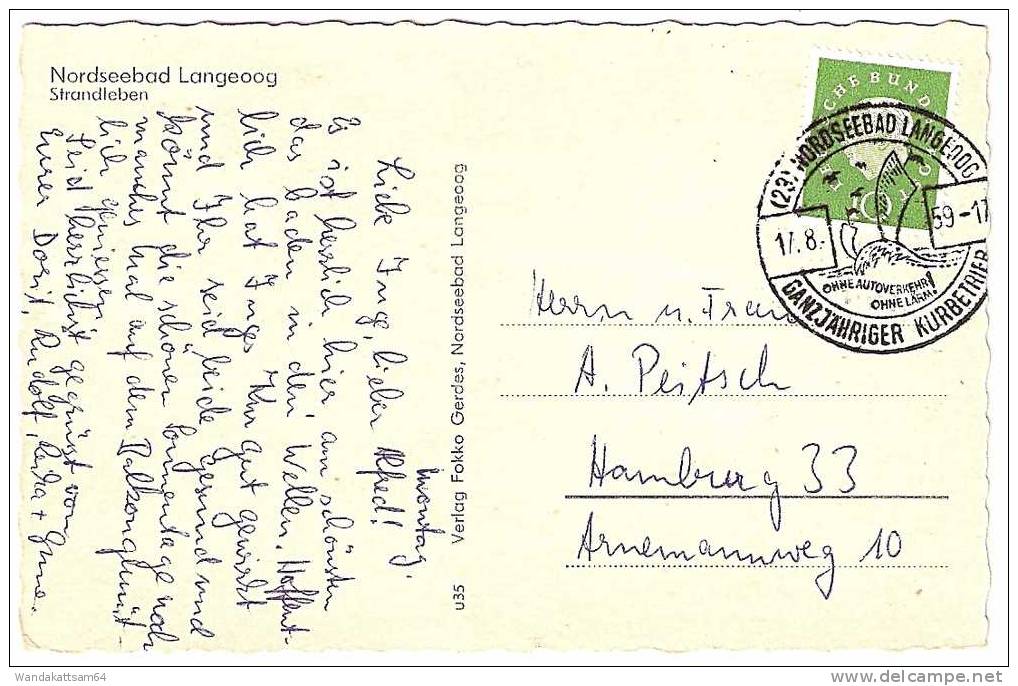 Nordseebad Langeoog
Strandleben
Montag.
Liebe Inge, lieber Alfred!
Es ist herrlich hier am schönsten
das baden in den Wellen. Hoffent-
lich hat Inges Kur gut gewirkt
und Ihr seid beide gesund und
könnt die schönen Sonnentage noch
manches mal auf dem Balkon gemüt-
lich geniessen.
Seid herzlichst gegrüsst von
Eurer Dorit, Rudolf,
u35 Verlag Fokko Gerdes, Nordseebad Langeoog
DEUTSCHE BUNDESPOST
10
(23) NORDSEEBAD LANGEOOG
17.8.
59-17
OHNE AUTOVERKEHR
OHNE LÄRM!
GANZJÄHRIGER KURBETRIEB
Herrn u. Frau
A. Peitsch
Hamburg 33
Arnemannweg 10
Wandakattsam64
delcampe.net